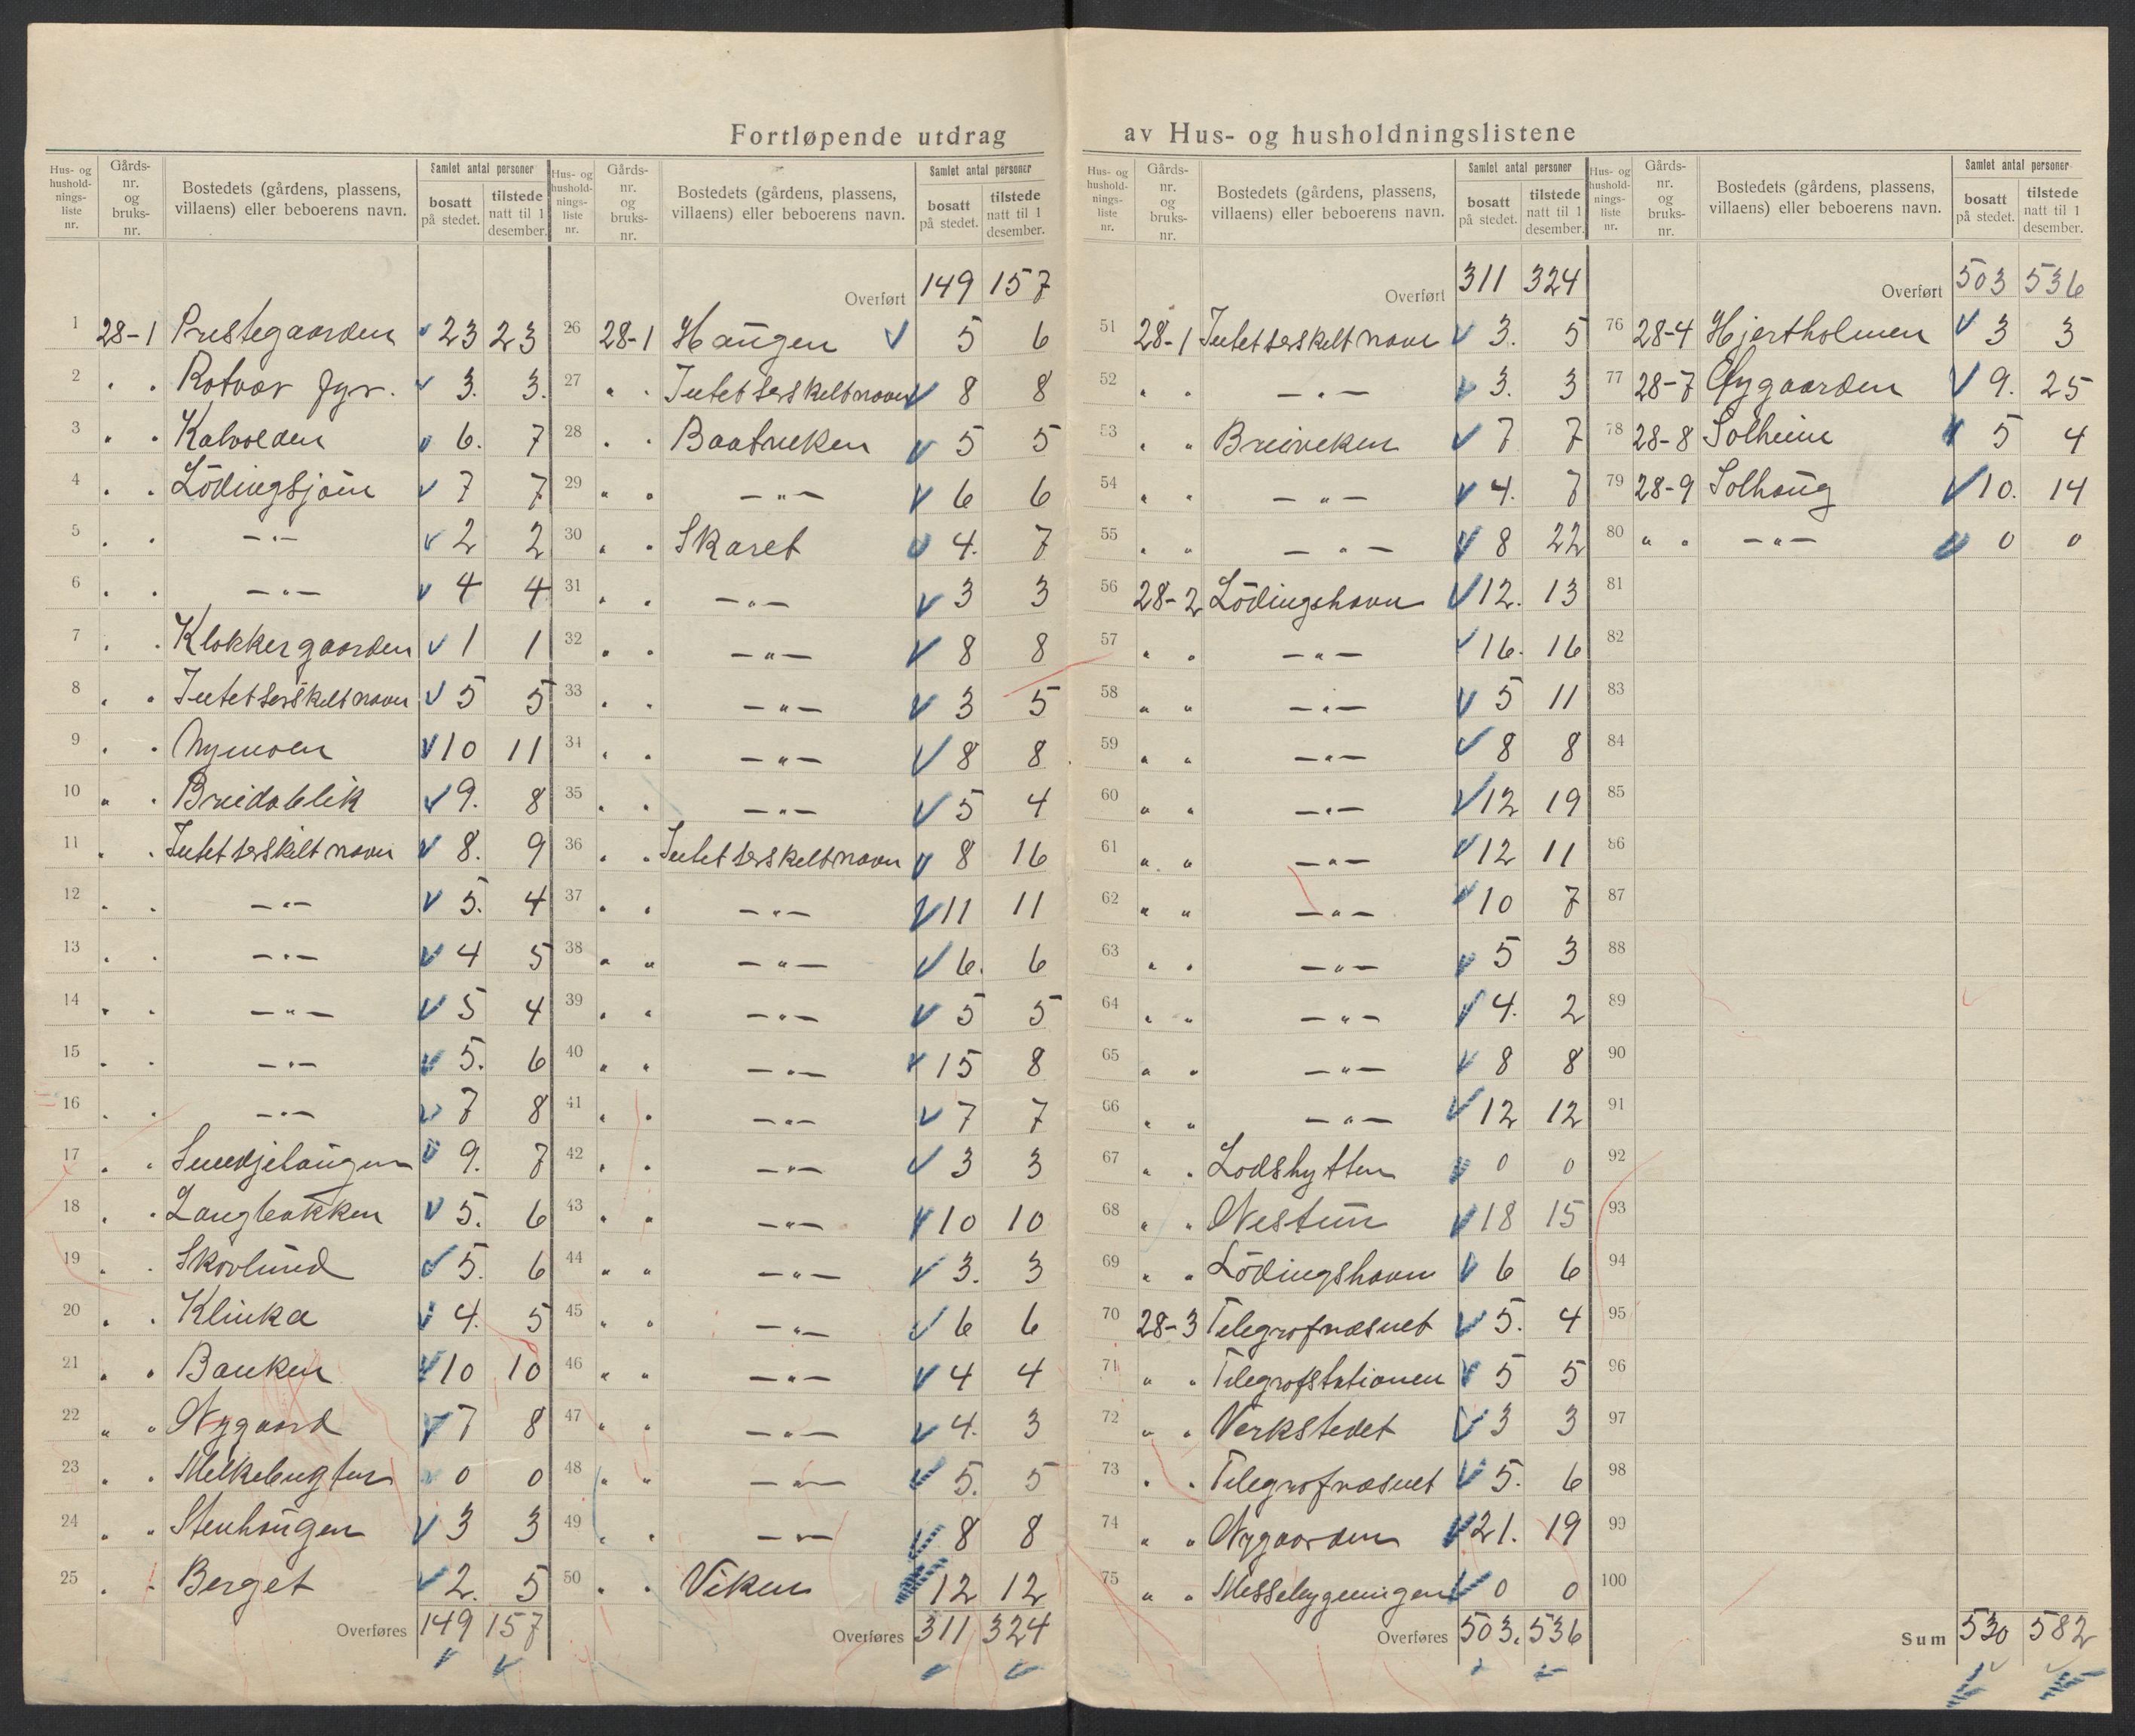 Fortløpende utdrag av Hus- og husholdningslistene
Hus- og hushold- nings- liste nr. | Gårds- nr. og bruks- nr. | Bostedets (gårdens, plassens, villaens) eller beboerens navn. | Samlet antal personer | bosatt på stedet. | tilstede natt til 1 desember.
1 28-1 Prestegaarden 23 23
2 " " Rotvær fyr. 3. 3.
3 " " Kalvolden 6. 7
4 " " Lödingsjöen 7 7
5 " " —"— 2 2
6 " " —"— 4 4
7 " " Klokkergaarden 1 1
8 " " Intet særskelt navn 5 5
9 " " Nymoen 10 11
10 " " Breidablik 9. 8
11 " " Intet særskilt navn 8. 9
12 " " —"— 5. 4
13 " " —"— 4 5
14 " " —"— 5 4
15 " " —"— 5. 6
16 " " —"— 7 8
17 " " Smedjehaugen 9. 7
18 " " Langbakken 5. 6
19 " " Skovlund 5. 6
20 " " Klinka 4. 5
21 " " Banken 10 10
22 " " Nygaard 7 8
23 " " 0 0
24 " " Stenhaugen 3 3
25 " " Berget 2. 5
Overføres 149 157
Hus- og hushold- nings- liste nr. | Gårds- nr. og bruks- nr. | Bostedets (gårdens, plassens, villaens) eller beboerens navn. | Samlet antal personer | bosatt på stedet. | tilstede natt til 1 desember.
Overført 149 157
26 28-1 Haugen 5 6
27 " " Intet særskelt navn 8 8
28 " " Baatveken 5 5
29 " " —"— 6 6
30 " " Skaret 4. 7
31 " " —"— 3 3
32 " " —"— 8 8
33 " " —"— 3 5
34 " " —"— 8 8
35 " " —"— 5 4
36 " " Intet særskelt navn 8 16
37 " " —"— 11 11
38 " " —"— 6. 6
39 " " —"— 5 5
40 " " —"— 15 8
41 " " —"— 7 7
42 " " —"— 3 3
43 " " —"— 10 10
44 " " —"— 3. 3
45 " " —"— 6 6
46 " " —"— 4 4
47 " " —"— 4. 3
48 " " —"— 5. 5
49 " " —"— 8 8
50 " " Viken 12 12
Overføres 311 324
Hus- og hushold- nings- liste nr. | Gårds- nr. og bruks- nr. | Bostedets (gårdens, plassens, villaens) eller beboerens navn. | Samlet antal personer | bosatt på stedet. | tilstede natt til 1 desember.
Overført 311 324
51 28-1 Intet særskelt navn 3. 5
52 " " —"— 3. 3
53 " " Breiveken 7 7
54 " " —"— 4. 7
55 " " —"— 8 22
56 28-2 Lödingshavn 12. 13
57 " " —"— 16. 16
58 " " —"— 5 11
59 " " —"— 8 8
60 " " —"— 12 19
61 " " —"— 12 11
62 " " —"— 10 7
63 " " —"— 5 3
64 " " —"— 4. 2
65 " " —"— 8 8
66 " " —"— 12 12
67 " " Lodshytten 0 0
68 " " Nestun 18 15
69 " " Lödingshavn 6 6
70 28-3 Telegrafnæsset 5. 4
71 " " Telegrafstationen 5 5
72 " " Verkstedet 3 3
73 " " Telegrafnæsset 5. 6
74 " " Nygaarden 21. 19
75 " " Messebygningen 0 0
Overføres 503. 536
Hus- og hushold- nings- liste nr. | Gårds- nr. og bruks- nr. | Bostedets (gårdens, plassens, villaens) eller beboerens navn. | Samlet antal personer | bosatt på stedet. | tilstede natt til 1 desember.
Overført 503 536
76 28-4 Hjertholmen 3 3
77 28-7 Øygaarden 9. 25
78 28-8 Solheim 5 4
79 28-9 Solhaug 10. 14
80 " " —"— 0 0
81
82
83
84
85
86
87
88
89
90
91
92
93
94
95
96
97
98
99
100
Sum 530 582